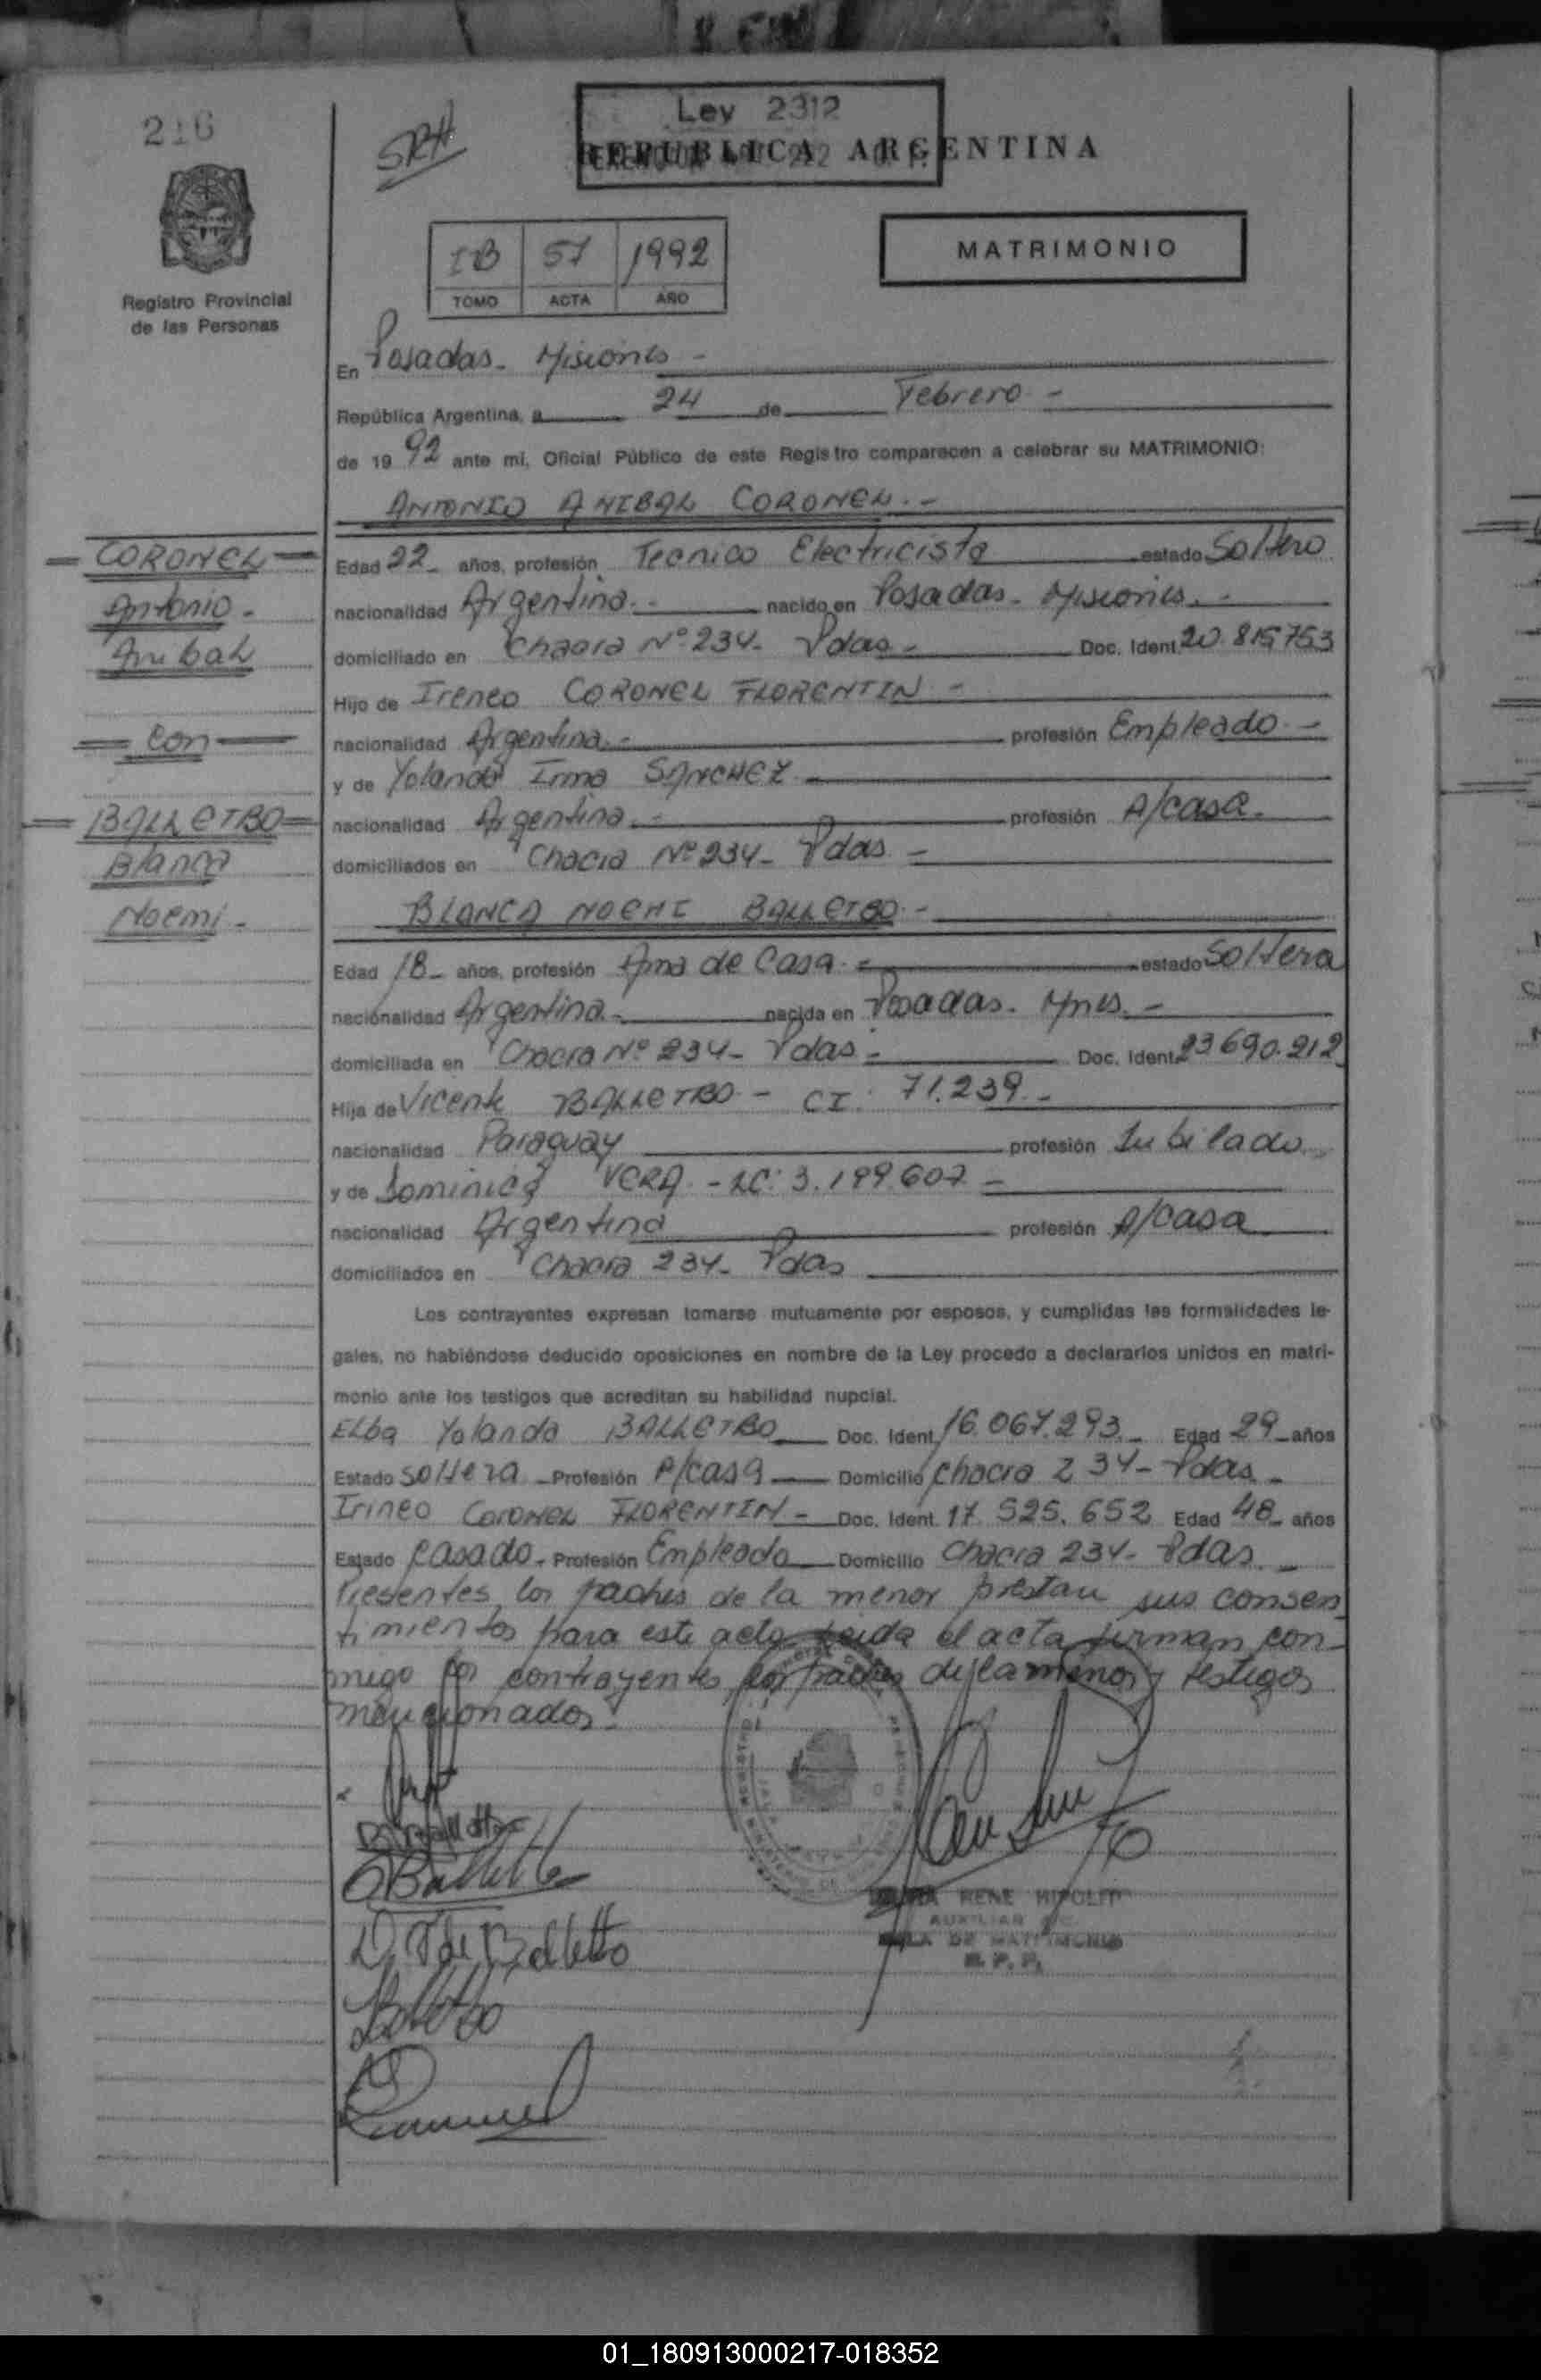 216
SRH
Ley 2312
REPUBLICA ARGENTINA
Registro Provincial
de las Personas
IB 57 1992
TOMO ACTA AÑO
MATRIMONIO
En Posadas - Misiones -
República Argentina, a 24 de Febrero -
de 19 92 ante mi, Oficial Público de este Registro comparecen a celebrar su MATRIMONIO:
ANTONIO ANIBAL CORONEL. -
CORONEL
Antonio -
Anibal
con
BALLETBO
Blanca
Noemi -
Edad 22 - años, profesión Tecnico Electricista estado Soltero
nacionalidad Argentina. - nacido en Posadas - Misiones. -
domiciliado en Chacra Nº 234 - Pdas - Doc. Ident. 20.815.753
Hijo de Ireneo CORONEL FLORENTIN -
nacionalidad Argentina. - profesión Empleado -
y de Yolanda Irma SANCHEZ
nacionalidad Argentina. - profesión A/casa.
domiciliados en Chacra Nº 234 - Pdas. -
BLANCA NOEMI BALLETBO. -
Edad 18 - años, profesión Ama de Casa. - estado Soltera
nacionalidad Argentina. - nacida en Posadas - Mnes. -
domiciliada en Chacra Nº 234 - Pdas - Doc. Ident. 23.690.212
Hija de Vicente BALLETBO - CI: 71.239. -
nacionalidad Paraguay profesión Jubilado
y de Dominica VERA - LC: 3.199.607 -
nacionalidad Argentina profesión A/casa
domiciliados en Chacra 234 - Pdas
Los contrayentes expresan tomarse mutuamente por esposos, y cumplidas las formalidades le-
gales, no habiéndose deducido oposiciones en nombre de la Ley procedo a declararlos unidos en matri-
monio ante los testigos que acreditan su habilidad nupcial.
Elba Yolanda BALLETBO Doc. Ident. 16.067.293 - Edad 29 - años
Estado soltera - Profesión A/casa Domicilio Chacra 234 - Pdas -
Irineo CORONEL FLORENTIN - Doc. Ident. 17.525.652 Edad 48 - años
Estado Casado - Profesión Empleado Domicilio Chacra 234 - Pdas. -
Presentes los padres de la menor prestan sus consen
timientos para este acto. Leida el acta firman con-
migo los contrayentes los padres de la menor y testigos
mencionados.
B Balletbo
D. V de Balletbo
RENE HIPOLITO
AUXILIAR
SALA DE MATRIMONIO
R. P. P.
01_180913000217-018352